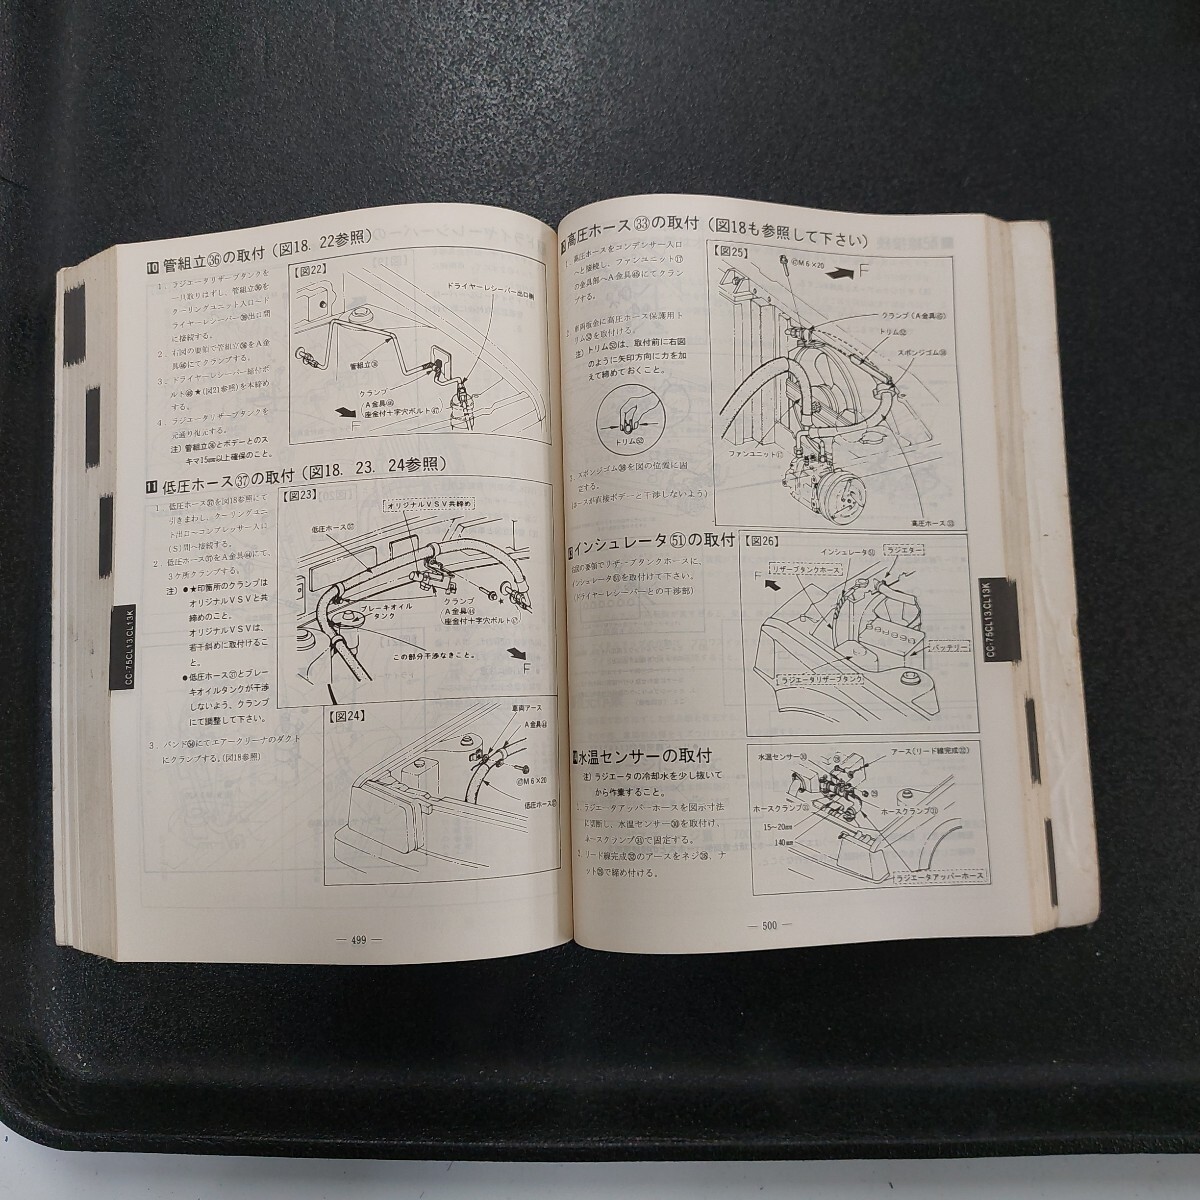 10 管組立㊱の取付（図18. 22参照）
1. ラジエータリザーブタンクを
一旦取りはずし、管組立㊱を
クーリングユニット入口～ド
ライヤーレシーバー㊳出口間
に接続する。
2. 右図の要領で管組立㊱をA金
具㊻にてクランプする。
3. ドライヤーレシーバー締付ボ
ルト㊽★(図21参照)を本締め
する。
4. ラジエータリザーブタンクを
元通り復元する。
注）管組立㊱とボデーとのス
キマ15㎜以上確保のこと。
【図22】
ドライヤーレシーバー出口側
管組立㊱
クランプ
A金具㊻
座金付十字穴ボルト㊼
F
11 低圧ホース㊲の取付（図18. 23. 24参照）
1. 低圧ホース㊲を図18参照にて
引きまわし、クーリングユニ
ット出口～コンプレッサー入口
(S)間へ接続する。
2. 低圧ホース㊲をA金具㊹にて、
3ケ所クランプする。
注）●★印箇所のクランプは
オリジナルVSVと共
締めのこと。
オリジナルVSVは、
若干斜めに取付けるこ
と。
●低圧ホース㊲とブレー
キオイルタンクが干渉
しないよう、クランプ
にて調整して下さい。
3. バンド㊿にてエアークリーナのダクト
にクランプする。(図18参照)
【図23】
オリジナルVSV共締め
低圧ホース㊲
ブレーキオイル
タンク
クランプ
A金具㊹
座金付十字穴ボルト㊼
★
この部分干渉なきこと。
F
【図24】
車両アース
A金具㊹
M6×20
低圧ホース㊲
CC-75CL13.CL13K
— 499 —
高圧ホース㉝の取付（図18も参照して下さい）
1. 高圧ホースをコンデンサー入口
へと接続し、ファンユニット⑰
の金具部へA金具㊺にてクラン
プする。
2. 車両板金に高圧ホース保護用ト
リム㊾を取付ける。
注）トリム㊾は、取付前に右図
のように矢印方向に力を加
えて締めておくこと。
トリム㊾
3. スポンジゴム㊴を図の位置に固
定する。
(ホースが直接ボデーと干渉しないよう)
【図25】
M6×20
F
クランプ（A金具㊺）
トリム㊾
スポンジゴム㊴
ファンユニット⑰
高圧ホース㉝
インシュレータ�51の取付
右図の要領でリザーブタンクホースに、
インシュレータ�51を取付けて下さい。
(ドライヤーレシーバーとの干渉部)
【図26】
インシュレータ�51
ラジエター
リザーブタンクホース
F
バッテリー
ラジエータリザーブタンク
水温センサーの取付
注）ラジエータの冷却水を少し抜いて
から作業すること。
ラジエータアッパーホースを図示寸法
に切断し、水温センサー㉚を取付け、
ホースクランプ㉛で固定する。
リード線完成㉜のアースをネジ㉘、ナ
ット㉙で締め付ける。
水温センサー㉚
㉘
アース（リード線完成㉜）
㉙
ホースクランプ㉛
ホースクランプ㉛
15～20㎜
140㎜
ラジエータアッパーホース
CC-75CL13.CL13K
— 500 —